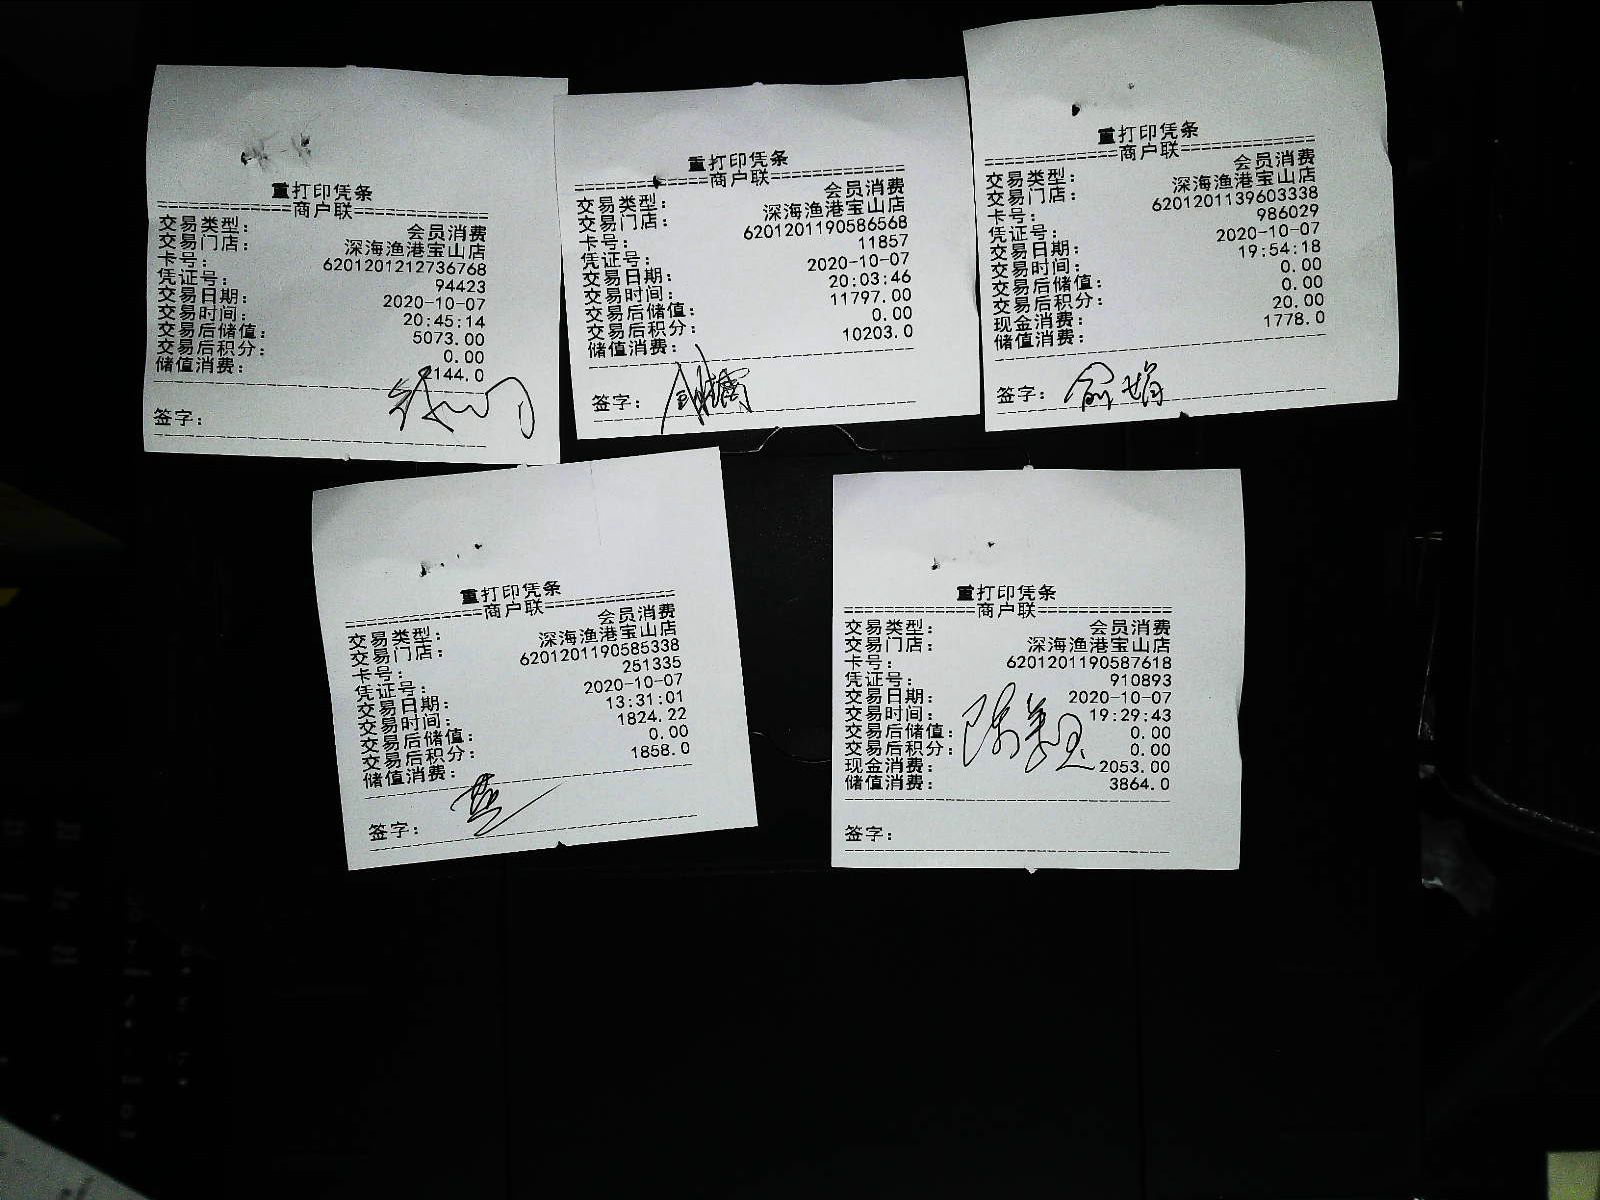 重打印凭条
============商户联============
交易类型: 会员消费
交易门店: 深海渔港宝山店
卡号: 6201201212736768
凭证号: 94423
交易日期: 2020-10-07
交易时间: 20:45:14
交易后储值: 5073.00
交易后积分: 0.00
储值消费: 2144.0
签字:
重打印凭条
============商户联============
交易类型: 会员消费
交易门店: 深海渔港宝山店
卡号: 6201201190586568
凭证号: 11857
交易日期: 2020-10-07
交易时间: 20:03:46
交易后储值: 11797.00
交易后积分: 0.00
储值消费: 10203.0
签字:
重打印凭条
============商户联============
交易类型: 会员消费
交易门店: 深海渔港宝山店
卡号: 6201201139603338
凭证号: 986029
交易日期: 2020-10-07
交易时间: 19:54:18
交易后储值: 0.00
交易后积分: 0.00
现金消费: 20.00
储值消费: 1778.0
签字: 俞娟
重打印凭条
============商户联============
交易类型: 会员消费
交易门店: 深海渔港宝山店
卡号: 6201201190585338
凭证号: 251335
交易日期: 2020-10-07
交易时间: 13:31:01
交易后储值: 1824.22
交易后积分: 0.00
储值消费: 1858.0
签字:
重打印凭条
============商户联============
交易类型: 会员消费
交易门店: 深海渔港宝山店
卡号: 6201201190587618
凭证号: 910893
交易日期: 2020-10-07
交易时间: 19:29:43
交易后储值: 0.00
交易后积分: 0.00
现金消费: 2053.00
储值消费: 3864.0
签字: